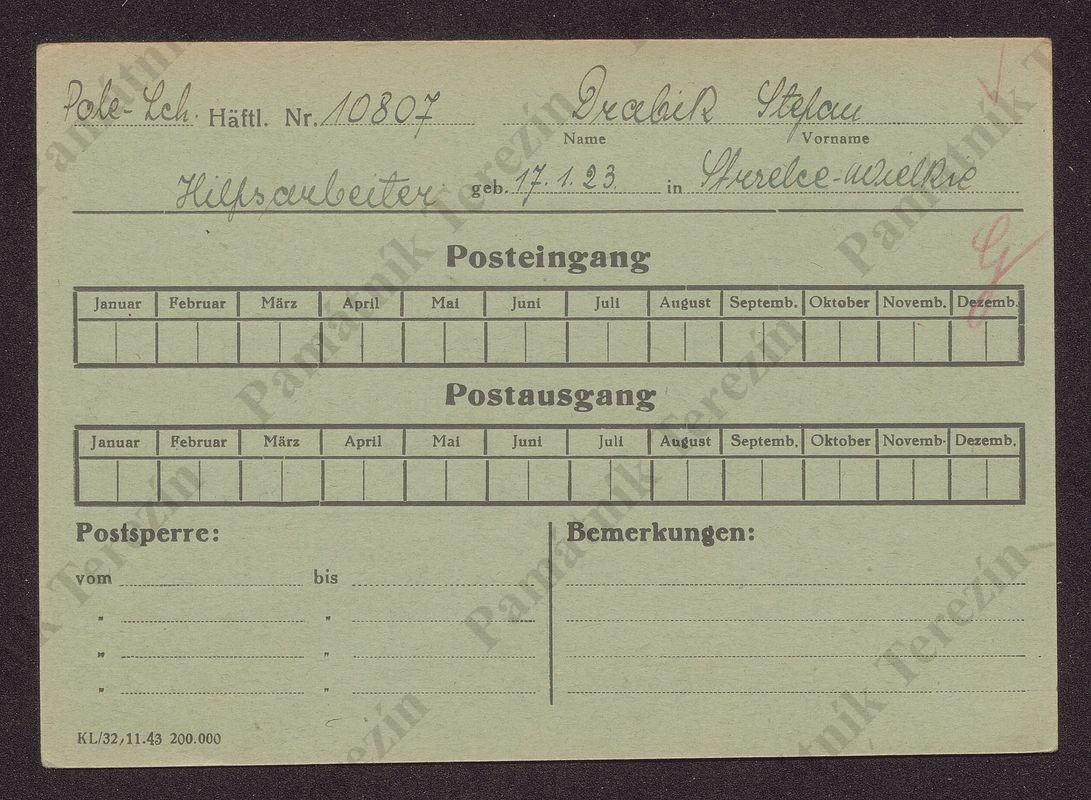 Pole-Sch. Häftl. Nr. 10807 Drabik Stefan
Name Vorname
Hilfsarbeiter geb. 17.1.23. in Strzelce-Wielkie
Posteingang
Januar Februar März April Mai Juni Juli August Septemb. Oktober Novemb. Dezemb.
Postausgang
Januar Februar März April Mai Juni Juli August Septemb. Oktober Novemb. Dezemb.
Postsperre: Bemerkungen:
vom bis
" "
" "
" "
KL/32, 11.43 200.000
Památník Terezín